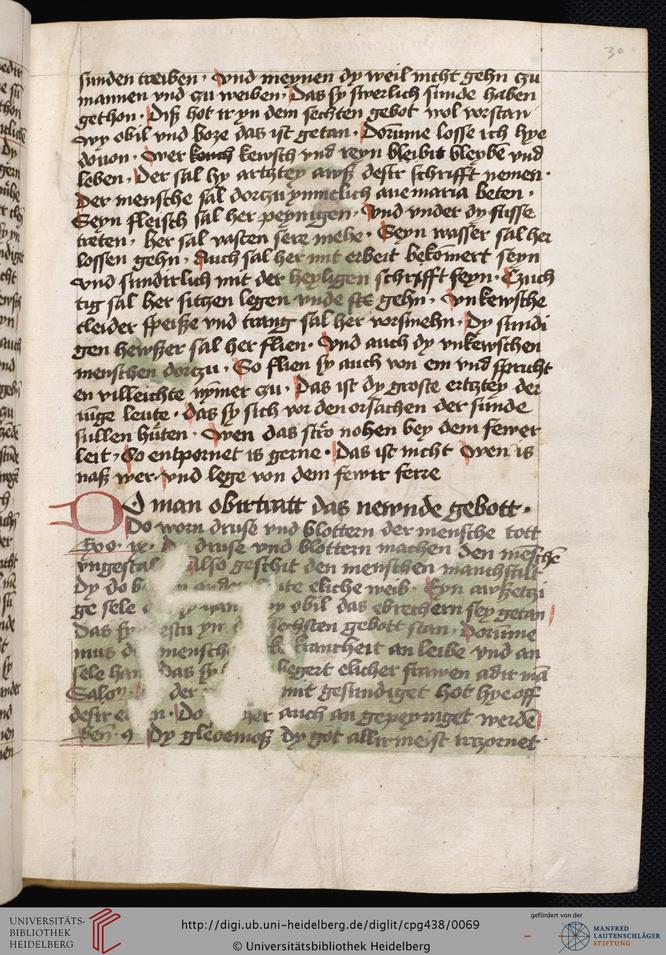 30
sunden treiben · Vnd meynen dy weil nicht gehn czu
mannen vnd czu weiben · Das sy swerlich sunde haben
gethon · Diß hot ir yn dem sechsten gebot wol vorstan
wy obil vnd boze das ist getan · Dorume losse ich hye
douon · Wer keusch vnd reyn bleibit bleyben vnd
leben · Der sal hy artztey awß desir schrifft nemen ·
Der mensche sal dorczu ynniclich aue maria beten ·
Seyn fleisch sal her peynigen · Vnd vnder dy fusse
treten · her sal vasten sere mehe · Seyn wasser sal her
lossen gehn · Auch sal her mit erbeit bekomert seyn
vnd sundirlich mit der heyligen schrifft seyn · Czuch
tig sal her siczen legen vnde gehn · Vnkewsche
cleider speiße vnd trang sal her vorsmehn · Dy sundi
gen hewßer sal her flien · Vnd auch dy vnkewschen
menschen dorczu · So flien sy auch von em vnd spricht
en villeichte nymer czu · Das ist dy groste ertztey der
iunge leute · das sy sich vor den orsachen der sunde
sullen huten · Wen das stro nohen bey dem fewer
leit · So entpornet is gerne · Das ist nicht Wen is
naß wer · vnd lege von dem fewir ferre
O man obirtritt das newnde gebott ·
Do worn druse vnd blottern der mensche tott
druse vnd blottern machen den mesche
vngestal also geschit den menschen manchfalt
dy do eliche weib Eyn awßetzi
ge sele obil das ebrechern sey getan
Das sechsten gebott stan · Dorume
mus mensch krancheit an leibe vnd an
sele elicher frawen adir man
der mit gesundiget hot hye off
desir auch an gepeyniget werde
Dy got allirmeist irczornet ·
UNIVERSITÄTS-
BIBLIOTHEK
HEIDELBERG
http://digi.ub.uni-heidelberg.de/diglit/cpg438/0069
© Universitätsbibliothek Heidelberg
gefördert von der
MANFRED
LAUTENSCHLÄGER
STIFTUNG